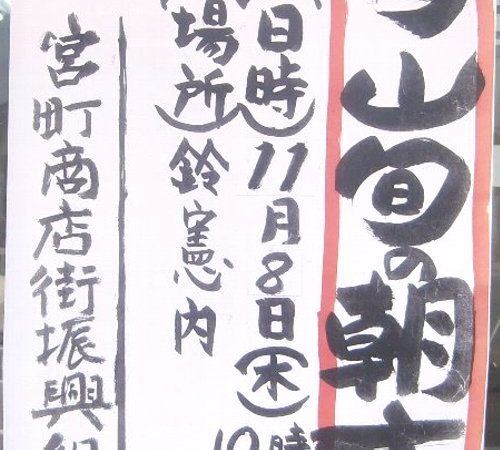 山旬の朝市
(日時)11月8日(木)
10時
(場所)鈴憲内
宮町商店街振興組